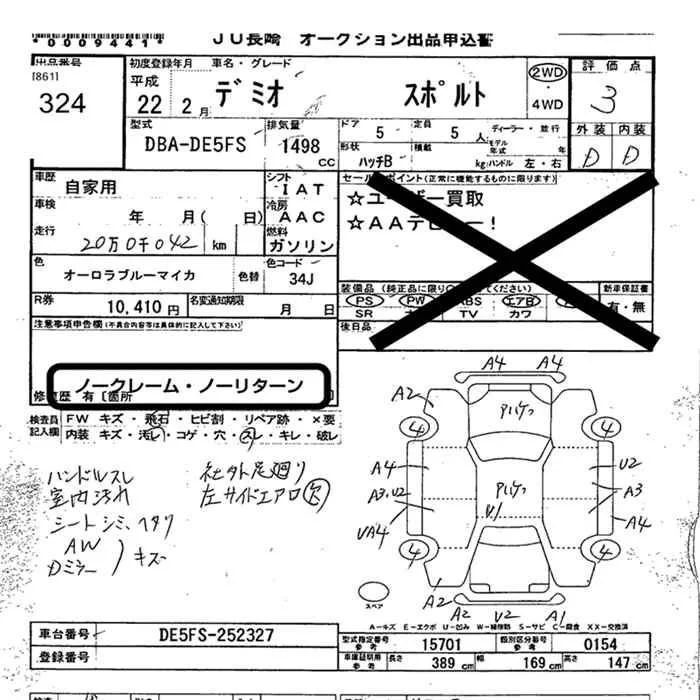 *0009441*
JU長崎 オークション出品申込書
出品番号
[861]
324
初度登録年月 車名・グレード
平成
22 2月 デミオ スポルト
2WD
・
4WD
評価点
3
外装 内装
D D
型式
DBA-DE5FS
排気量
1498
CC
ドア 5 定員 5 人
形状 ハッチB 積載 kg
ディーラー・並行
モデル年式
ハンドル 左・右
車歴 自家用
車検 年 月( 日)
走行 20万0千042 km
シフト
IAT
冷房
AAC
燃料
ガソリン
色
オーロラブルーマイカ 色替
色コード
34J
R券 10,410円 名変通知期限 月 日
セールスポイント(正常に機能するものに限ります)
☆ユーザー買取
☆AAデビュー!
装備品 (純正品に限り てください)
PS PW ABS エアB
SR TV カワ
新車保証書
有・無
後日品
注意事項申告欄(不具合内容等は具体的に記入して下さい)
ノークレーム・ノーリターン
修復歴 有〔箇所
検査員記入欄
FW キズ・飛石・ヒビ割・リペア跡・×要
内装 キズ・汚レ・コゲ・穴・スレ・キレ・破レ
ハンドルスレ 社外足廻り
室内汚れ 左サイドエアロ欠
シートシミ、ヘタリ
AW
Dミラー ) キズ
A4 A4
A2 アルケワ
4 4
A4 U2
A3.U2 アルケワ A3
V1
VA4 A4
4 4
A2 A2 V2 A1
スペア
A−キズ E−エクボ U−凹み W−補修跡 S−サビ C−腐食 XX−交換済
車台番号 DE5FS-252327
登録番号
型式指定番号 参考 15701 類別区分番号 参考 0154
車庫証明用 参考 長さ 389 cm 幅 169 cm 高さ 147 cm